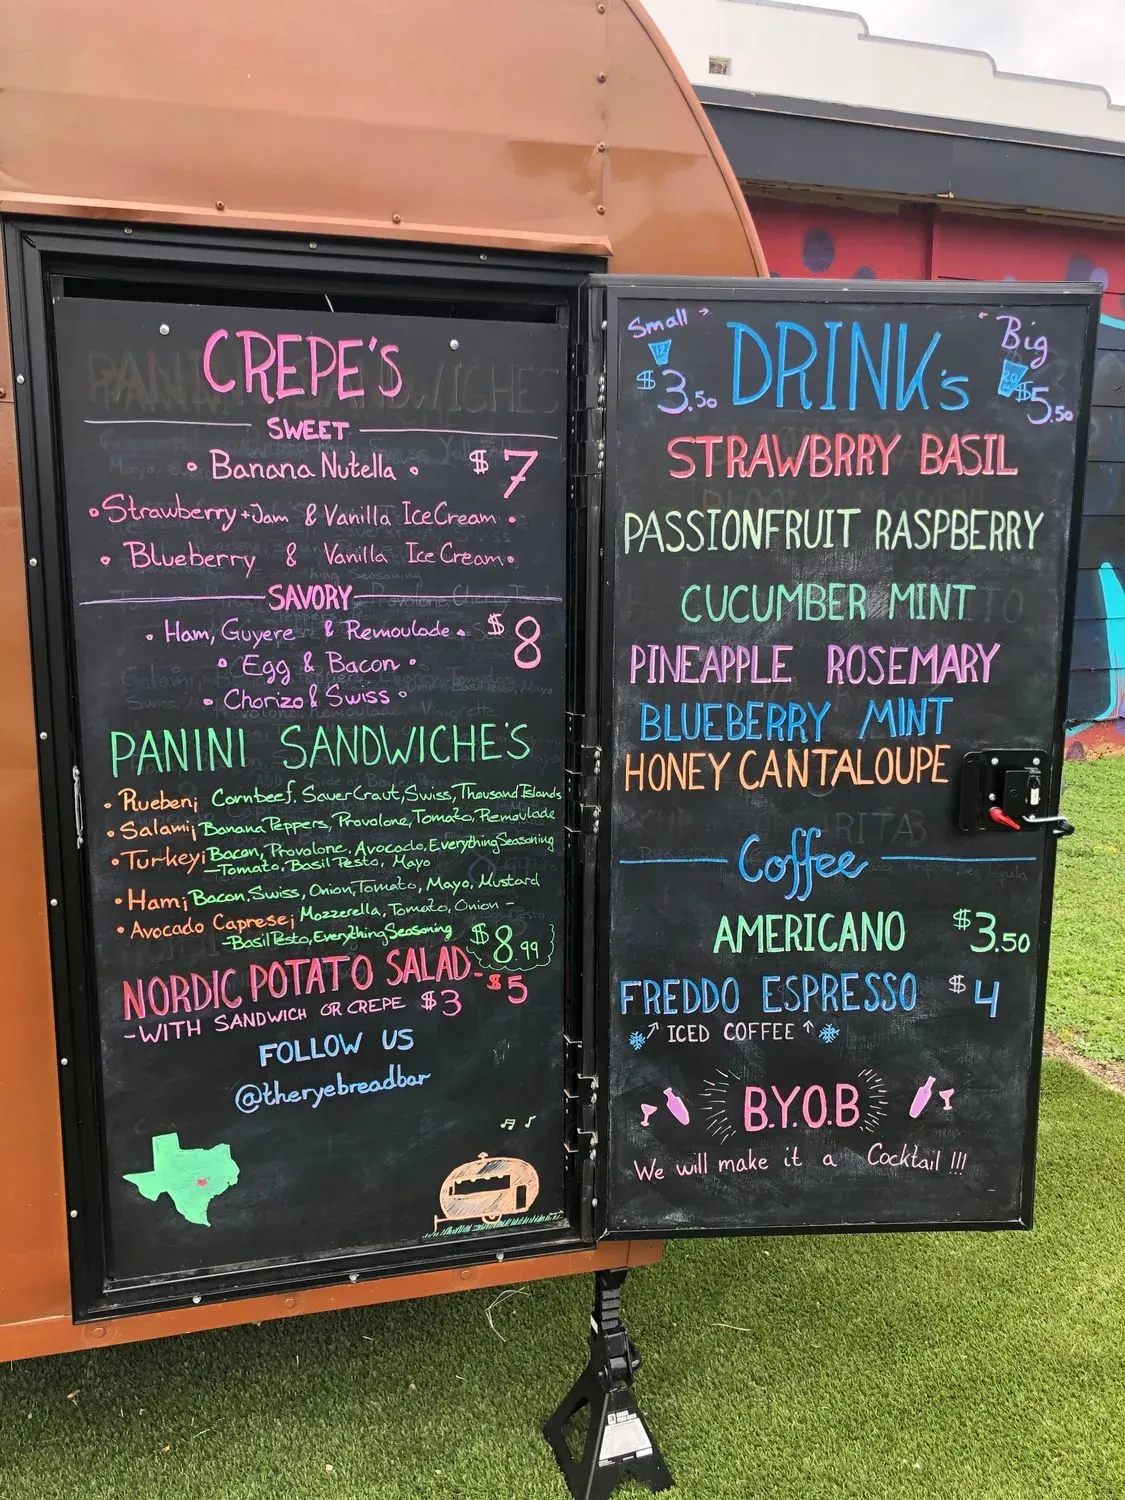 CREPE'S
SWEET
• Banana Nutella • $7
• Strawberry+Jam & Vanilla IceCream •
• Blueberry & Vanilla Ice Cream •
SAVORY
• Ham, Guyere & Remoulade • $8
• Egg & Bacon •
• Chorizo & Swiss •
PANINI SANDWICHE'S
• Rueben; Cornbeef, SauerCraut, Swiss, Thousand Islands
• Salami; Banana Peppers, Provolone, Tomato, Remoulade
• Turkey; Bacon, Provolone, Avocado, Everything Seasoning
– Tomato, Basil Pesto, Mayo
• Ham; Bacon, Swiss, Onion, Tomato, Mayo, Mustard
• Avocado Caprese; Mozzerella, Tomato, Onion –
– Basil Pesto, Everything Seasoning $8.99
NORDIC POTATO SALAD - $5
- WITH SANDWICH OR CREPE $3
FOLLOW US
@theryebreadbar
Small
12
$3.50
DRINK's
Big
20
$5.50
STRAWBRRY BASIL
PASSIONFRUIT RASPBERRY
CUCUMBER MINT
PINEAPPLE ROSEMARY
BLUEBERRY MINT
HONEY CANTALOUPE
Coffee
AMERICANO $3.50
FREDDO ESPRESSO $4
ICED COFFEE
B.Y.O.B
We will make it a Cocktail !!!